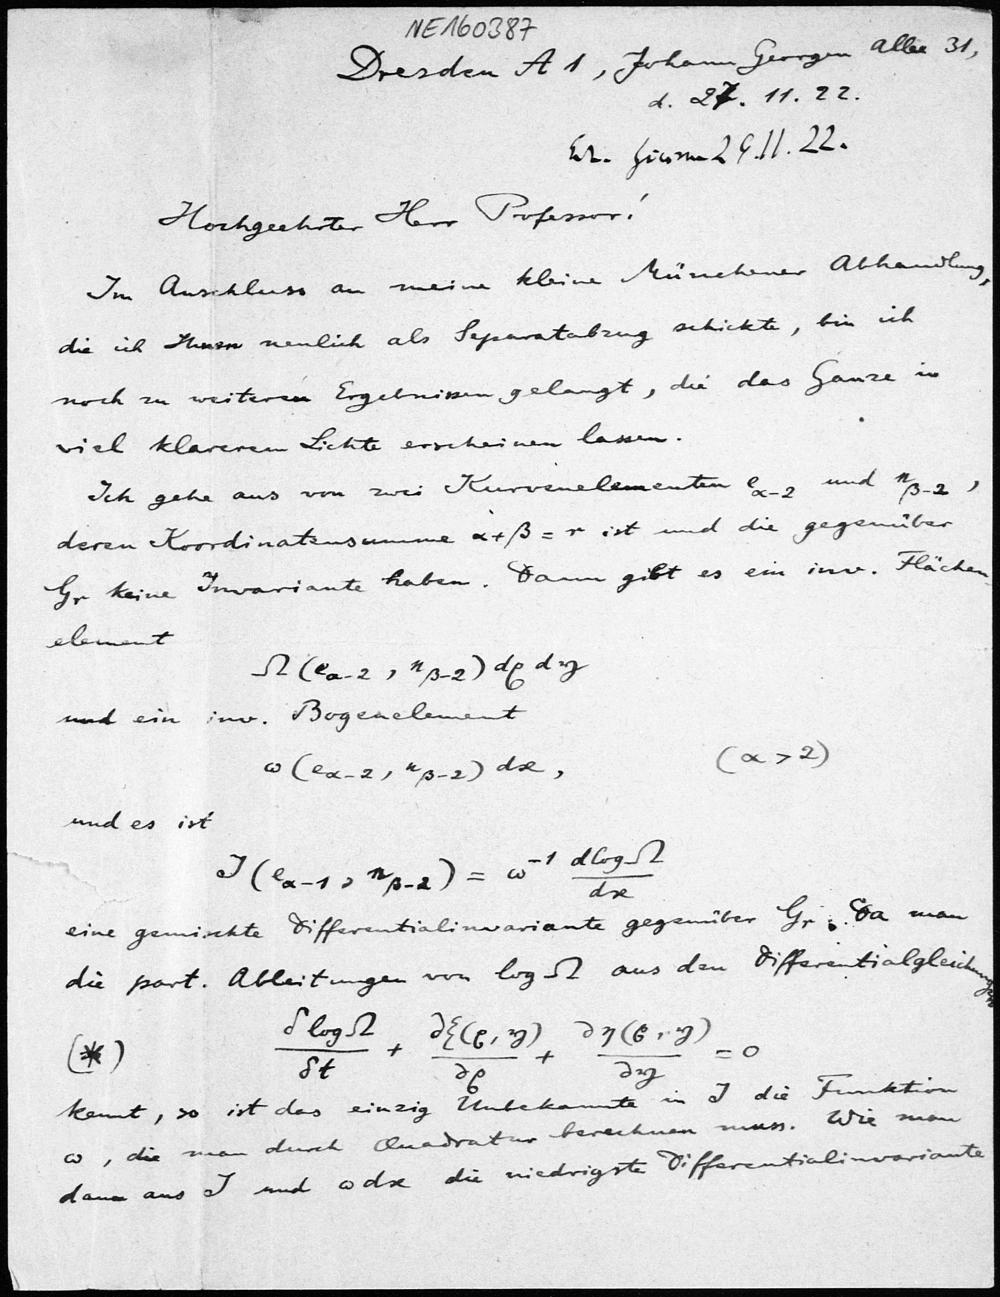 NE160387
Dresden A 1, Johann Georgen Allee 31,
d. 27. 11. 22.
29.11.22.
Hochgeehrter Herr Professor!
Im Anschluss an meine kleine Münchener Abhandlung,
die ich Ihnen neulich als Separatabzug schickte, bin ich
noch zu weiteren Ergebnissen gelangt, die das Ganze in
viel klarerem Lichte erscheinen lassen.
Ich gehe aus von zwei Kurvenelementen e_{α-2} und n_{β-2},
deren Koordinatensumme α+β = r ist und die gegenüber
G_r keine Invariante haben. Dann gibt es ein inv. Flächen-
element
Ω (e_{α-2}, n_{β-2}) dx dy
und ein inv. Bogenelement
ω (e_{α-2}, n_{β-2}) dx, (α > 2)
und es ist
J (e_{α-1}, n_{β-2}) = ω^{-1} d log Ω / dx
eine gemischte Differentialinvariante gegenüber G_r. Da man
die part. Ableitungen von log Ω aus den Differentialgleichungen
(*) δ log Ω / δt + ∂ξ(x, y) / ∂x + ∂η(x, y) / ∂y = 0
kennt, so ist das einzig Unbekannte in J die Funktion
ω, die man durch Quadratur berechnen muss. Wie man
dann aus J und ω dx die niedrigste Differentialinvariante